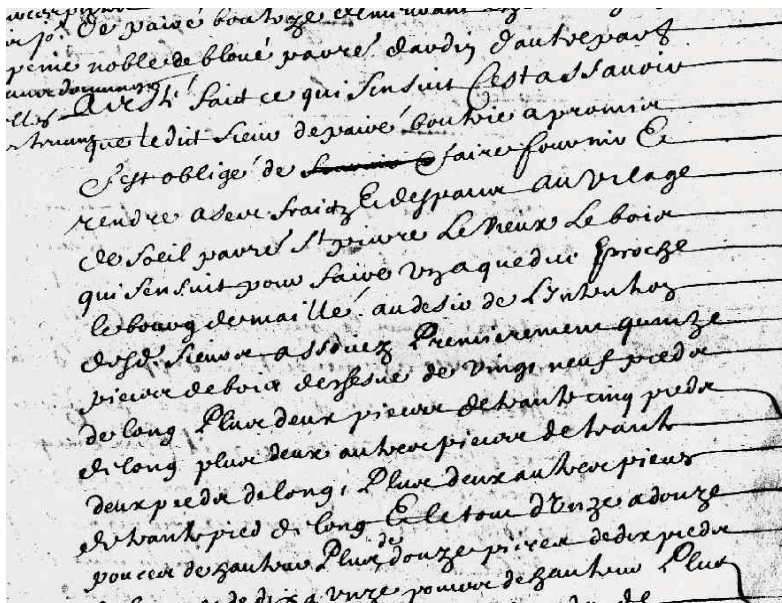 de paivé boutrze
peine noble de bloué parroisse dardin d'autre part
A esté fait ce qui sensuit C'est assavoir
que ledit sieur depaivé boutrie a promis
s'est obligé de faire fournir &
rendre a ses fraictz & despans au vilage
de soeil parroisse St pierre Le vieux Le bois
qui sensuit pour faire un aqueduc proche
le bourg de maillé au desir de L'intention
desd sieurs assoiez Premierement quinze
pieces de bois de chesne de vingt neuf pieds
de long Plus deux pieces de trante cinq pieds
de long plus deux autres pieces de trante
deux pieds de long, Plus deux autres pieces
de trante pied de long Et le tout d'Unze a douze
pouces de hauteur Plus de douze pieces de dix pieds
de dix a unze pouces de hauteur Plus